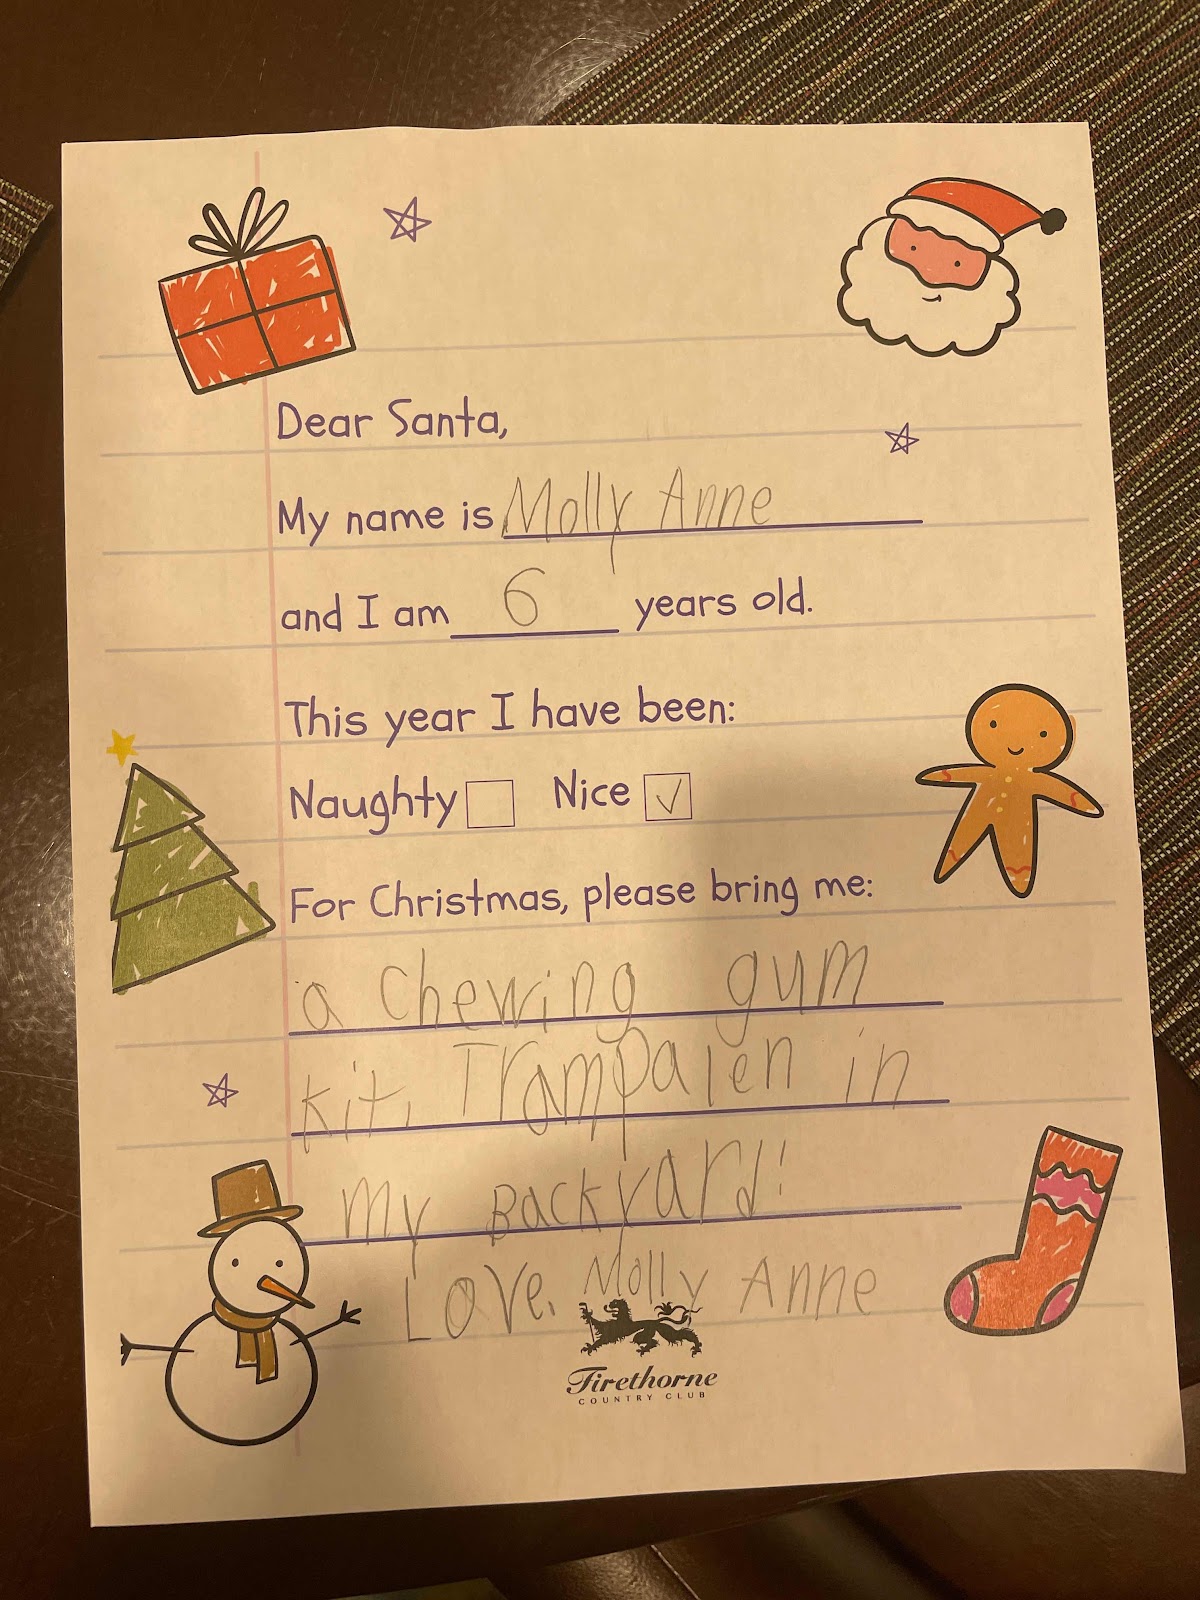 Dear Santa,
My name is Molly Anne
and I am 6 years old.
This year I have been:
Naughty Nice ✓
For Christmas, please bring me:
a chewing gum
kit, Trampalen in
my Backyard!
Love, Molly Anne
Firethorne
COUNTRY CLUB